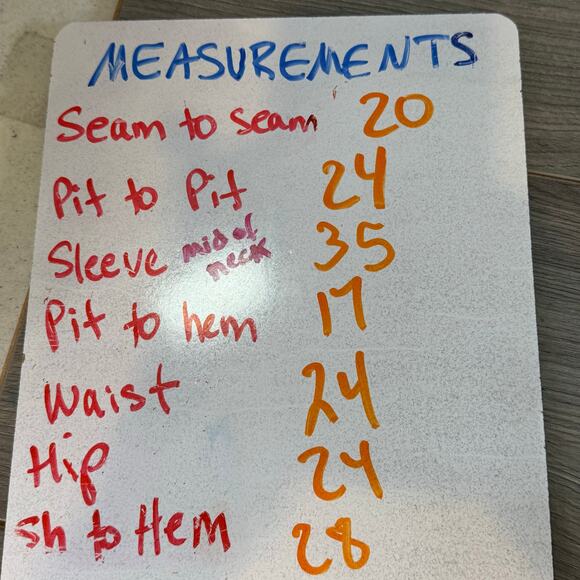 MEASUREMENTS
Seam to seam 20
Pit to Pit 24
Sleeve mid of neck 35
Pit to hem 17
Waist 24
Hip 24
Sh to Hem 28